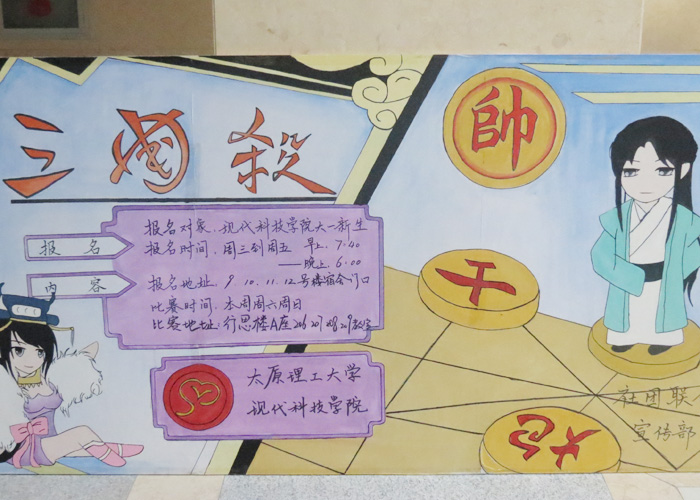 三國殺
帥
报名
报名对象、现代科技学院大一新生
报名时间、周三到周五 早上 7:40
——晚上 6:00
内容
报名地址、9、10、11、12号楼宿舍门口
比赛时间:本周周六周日
比赛地址:行思楼A座206 207 208 209教室
太原理工大学
现代科技学院
社团联
宣传部